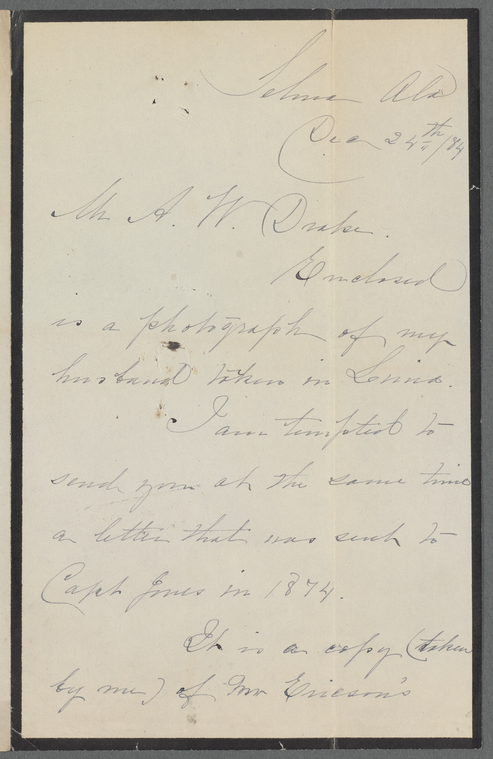 Selma Ala
Dec 24th/84
Mr A. W. Drake.
Enclosed
is a photograph of my
husband taken in Lima.
I am tempted to
send you at the same time
a letter that was sent to
Capt Jones in 1874.
It is a copy (taken
by me) of Mr Ericson's